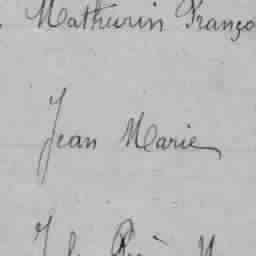 Mathurin Franço
Jean Marie